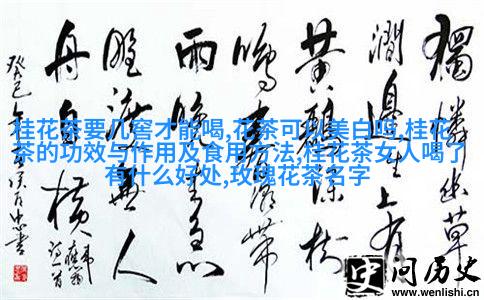 獨憐幽草
澗邊生上有
黄鸝深樹
鳴春潮帶
雨晚来急
野渡無人
舟自横
癸巳年
桂花茶要几窖才能喝,花茶可以美白吗,桂花
茶的功效与作用及食用方法,桂花茶女人喝了
有什么好处,玫瑰花茶名字
史问历史
www.wenlishi.cn